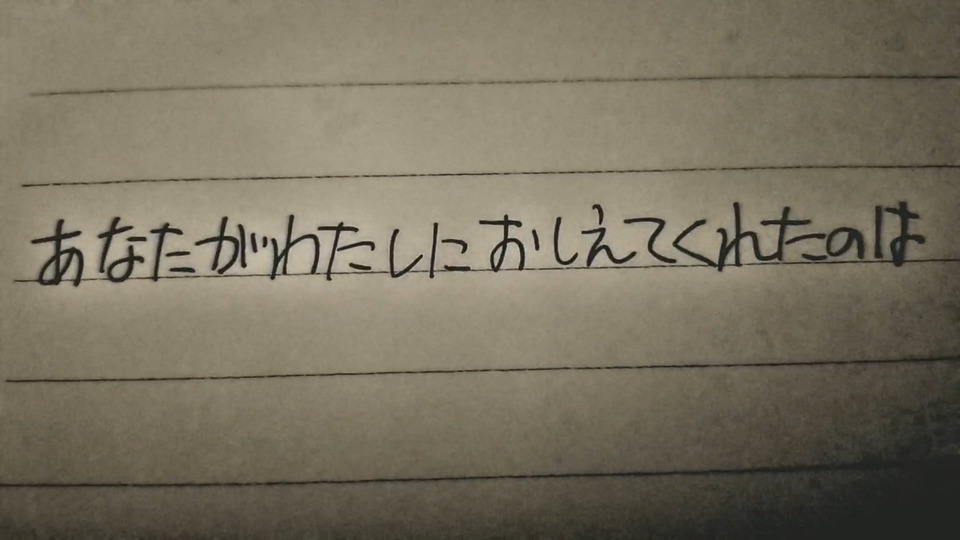 あなたがわたしにおしえてくれたのは